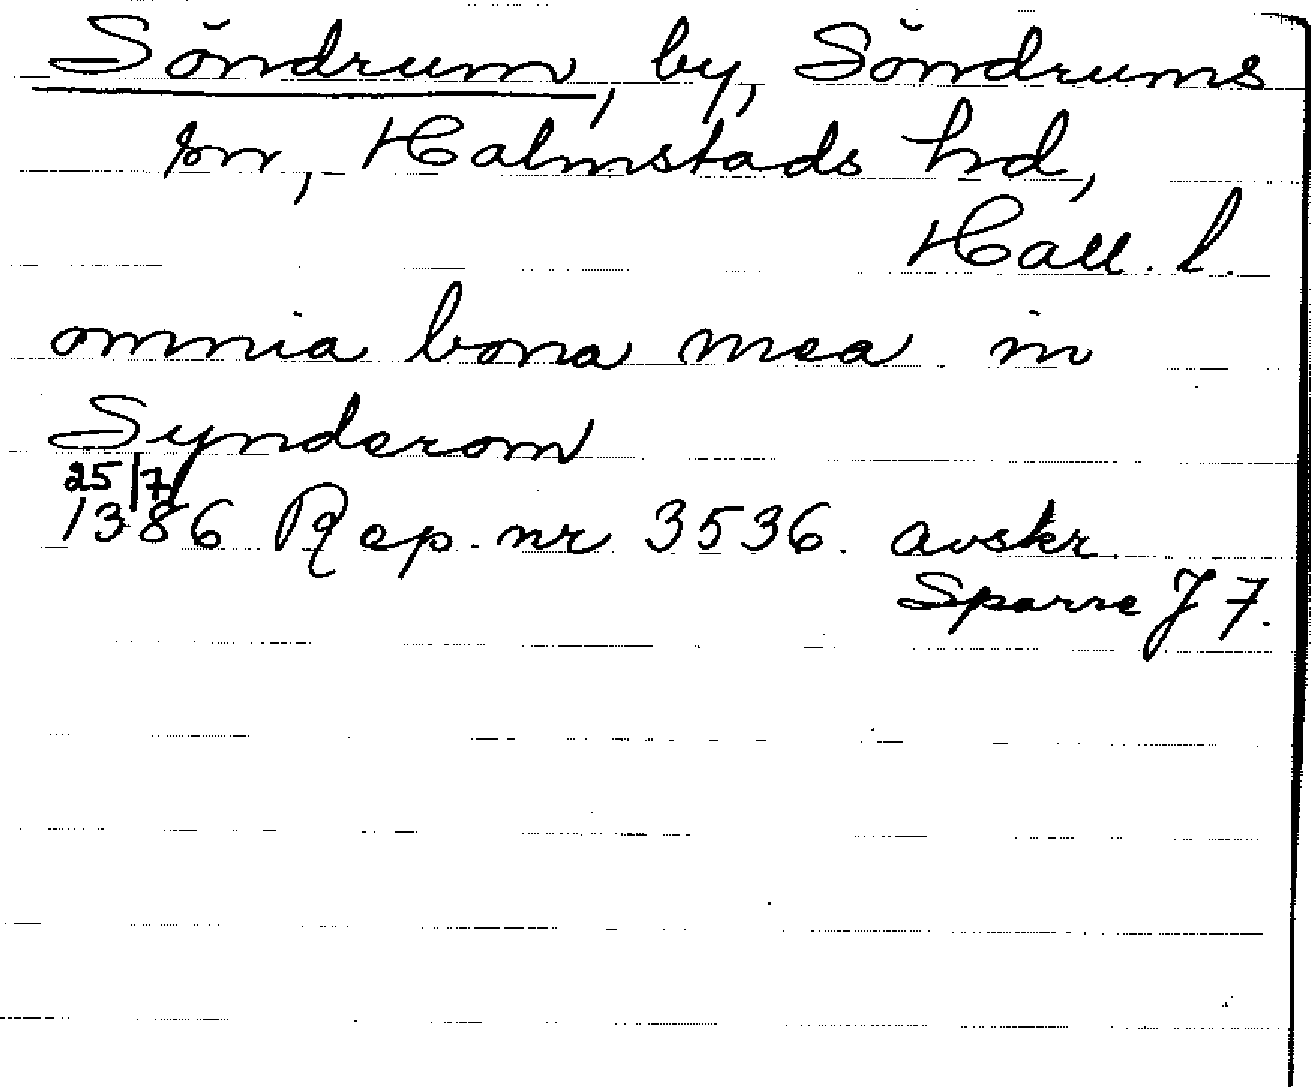 Söndrum, by, Söndrums
sn, Halmstads hd,
Hall. l.
omnia bona mea in
Synderom
25/7
1386 Rep. nr 3536. avskr.
Sparre J 7.